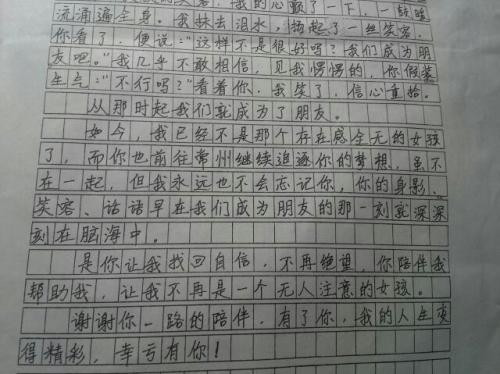 的笑容，我的心颤了一下，一轻暖
流涌遍全身。我抹去泪水，扬起了一丝笑容，
你看了，便说："这样不是很好吗？我们成为朋
友吧。"我几乎不敢相信，见我愣愣的，你假装
生气："不行吗？"看着你，我笑了，信心重拾。
从那时起我们就成为了朋友。
如今，我已经不是那个存在感全无的女孩
了，而你也前往常州继续追逐你的梦想，虽不
在一起，但我永远也不会忘记你，你的身影、
笑容、话语早在我们成为朋友的那一刻就深深
刻在脑海中。
是你让我找回自信，不再绝望，你陪伴我
帮助我，让我不再是一个无人注意的女孩。
谢谢你一路的陪伴，有了你，我的人生变
得精彩，幸亏有你！